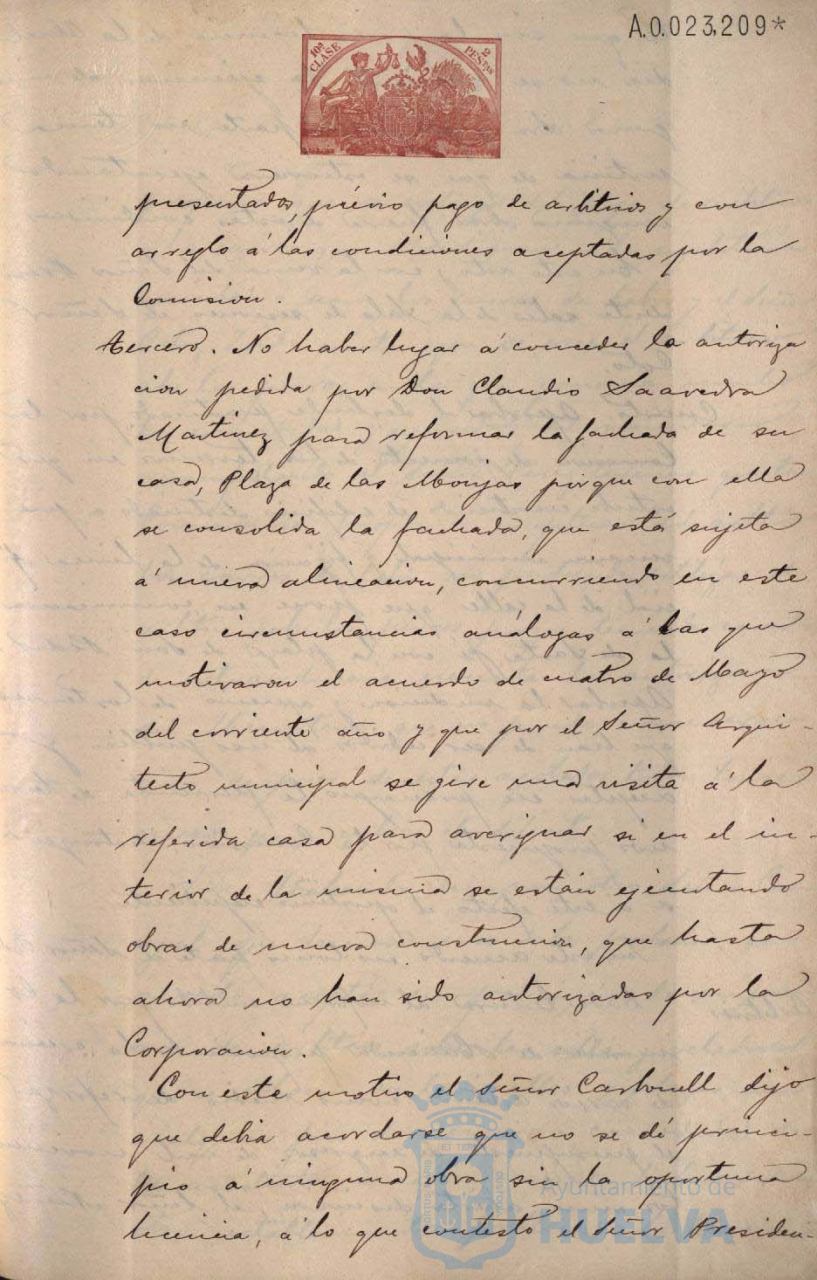 A.0.023,209*
10ª CLASE
2 PESTAS
presentados, prévio pago de arbitrios y con
arreglo á las condiciones aceptadas por la
Comision.
Tercero. No haber lugar á conceder la autoriza
cion pedida por Don Claudio Saavedra
Martinez para reformar la fachada de su
casa, Plaza de las Monjas porque con ella
se consolida la fachada, que está sujeta
á nueva alineacion, concurriendo en este
caso circunstancias análogas á las que
motivaron el acuerdo de cuatro de Mayo
del corriente año y que por el Señor Arqui-
tecto municipal se gire una visita á la
referida casa para averiguar si en el in-
terior de la misma se están ejecutando
obras de nueva construccion, que hasta
ahora no han sido autorizadas por la
Corporacion.
Con este motivo el Señor Carbonell dijo
que debia acordarse que no se dé princi-
pio á ninguna obra sin la oportuna
licencia, á lo que contestó el Señor Presiden-
Ayuntamiento de
HUELVA